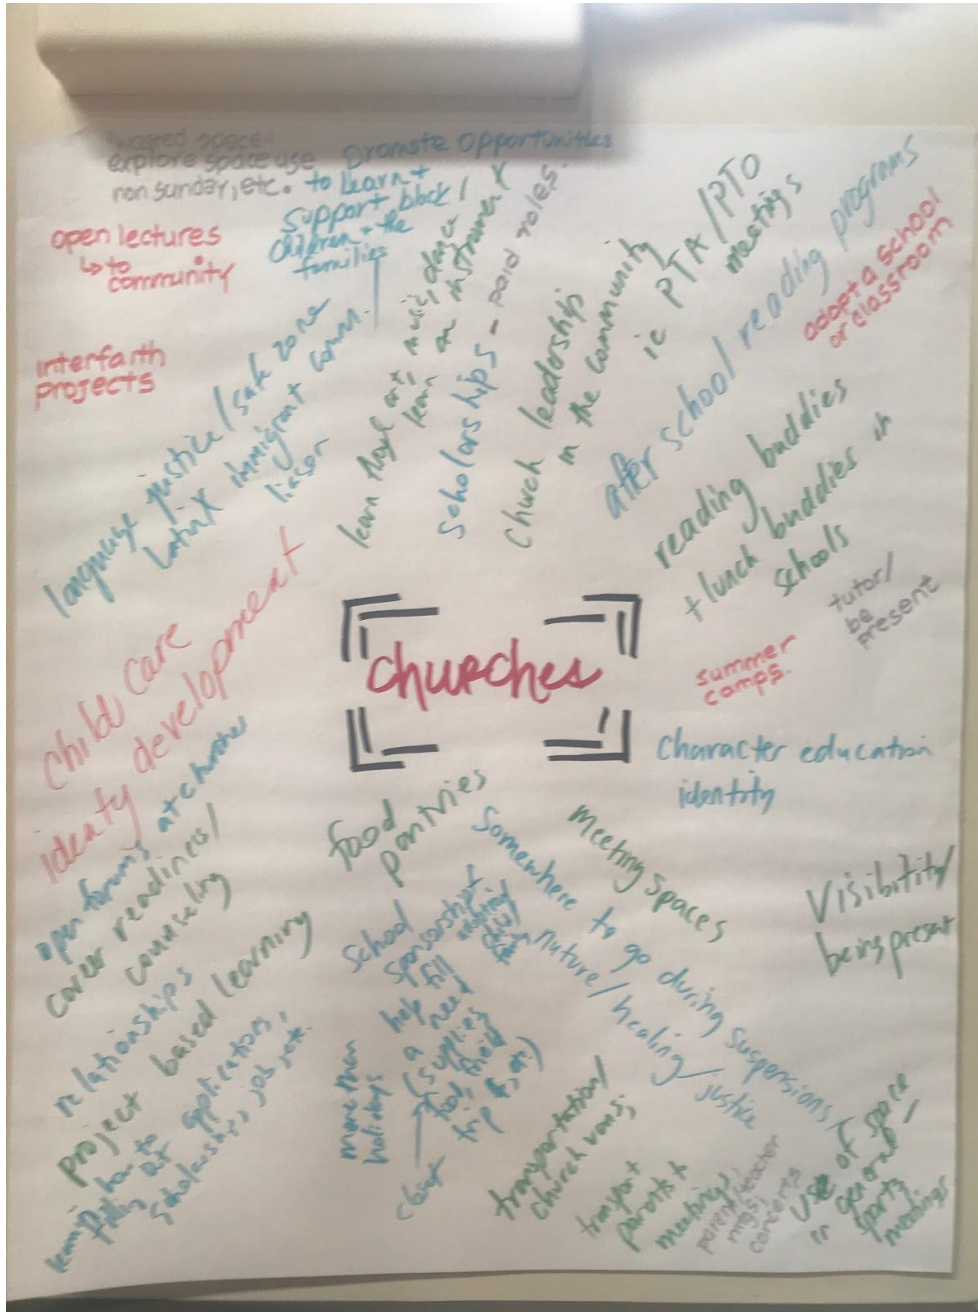 shared space
explore space use
non sunday, etc.
promote opportunities
to learn +
support black
children + the
families
open lectures
↳ to
community
interfaith
projects
language justice / safe zone
LatinX immigrant comm.
liason
learn
art,
music, dance /
learn an instrument
scholarships - paid roles.
Church leadership
in the community
ie PTA / PTO
meetings
after school reading programs
adopt a school
or classroom
reading buddies
+ lunch buddies in
schools
tutor/
be
present
summer
camps.
churches
Character education
identity
child care
identy development
open forums at churches
career readiness /
counseling
relationships
project based learning
learning how to
fill out applications,
scholarships, job, etc.
food
pantries
School
sponsorships
help fill
a need
(supplies
food, field
trip $, etc)
more than
holidays
Somewhere to go during suspensions
nuture / healing / justice
meeting spaces
Visibility/
being present
transportation/
church vans;
transport
parents +
meetings,
parent/teacher
mtgs,
concerts
use of space
in general -
sports
meetings